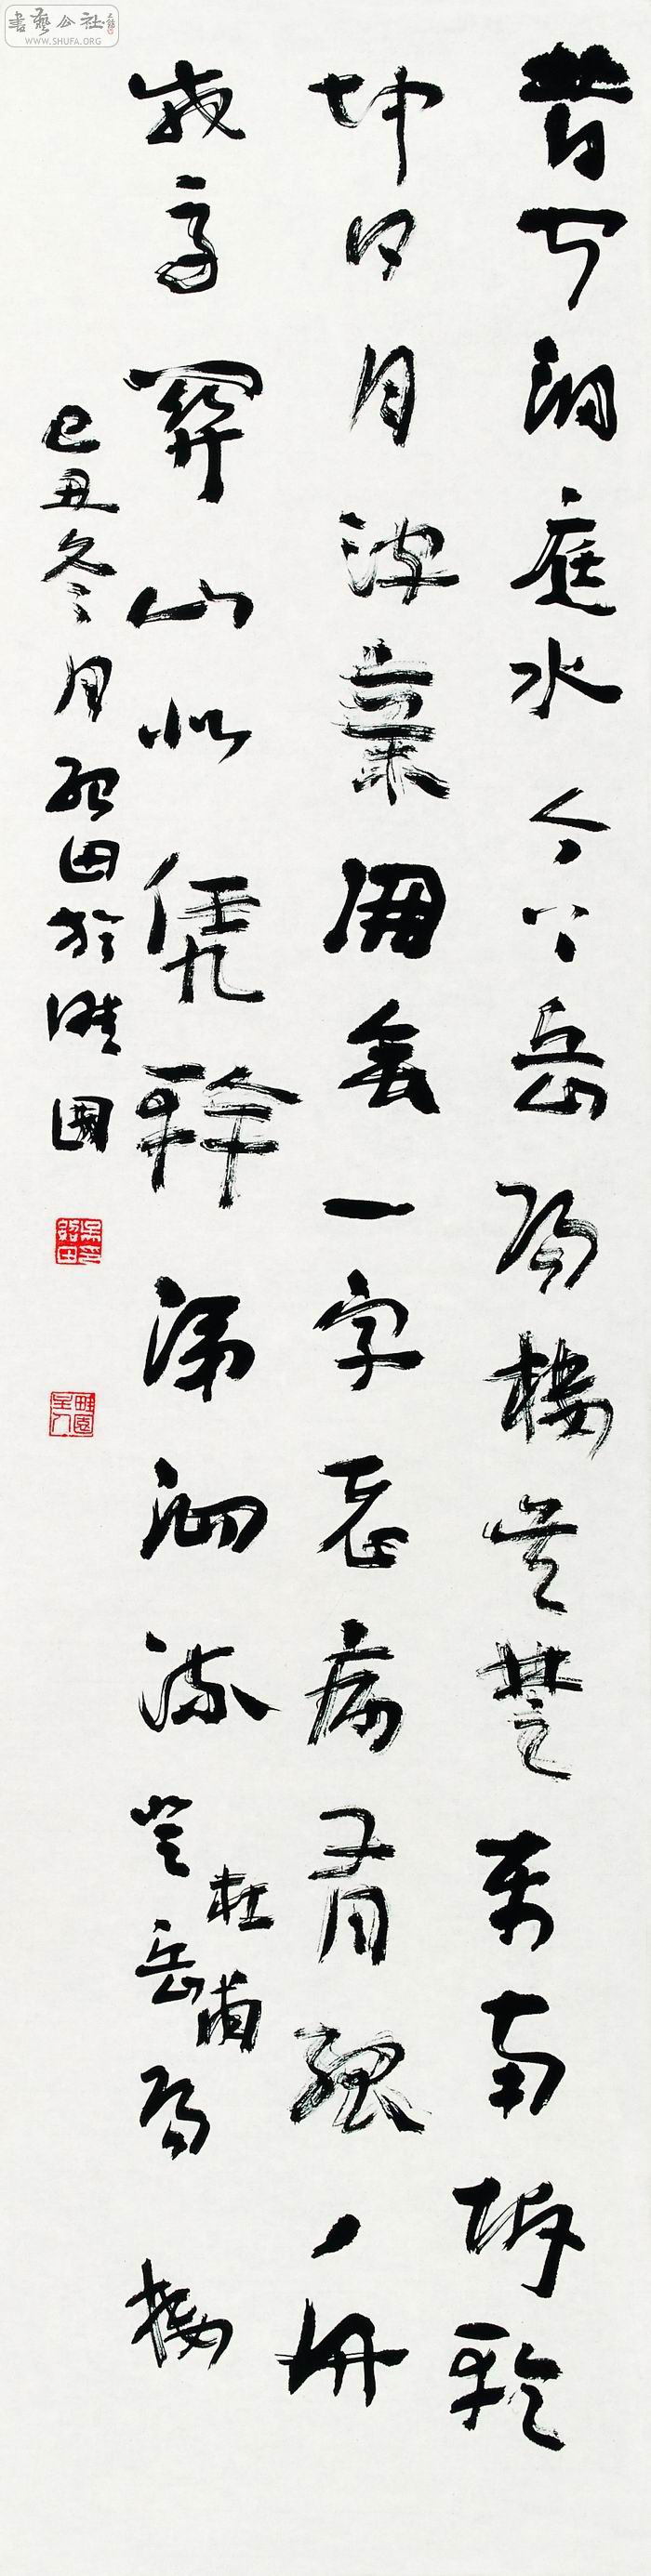 書藝公社
WWW.SHUFA.ORG
昔闻洞庭水今上岳陽樓吳楚東南坼乾
坤日月浮親朋無一字老病有孤舟
戎馬關山北凭軒涕泗流登岳陽樓
杜甫
己丑冬月韶田於畦園